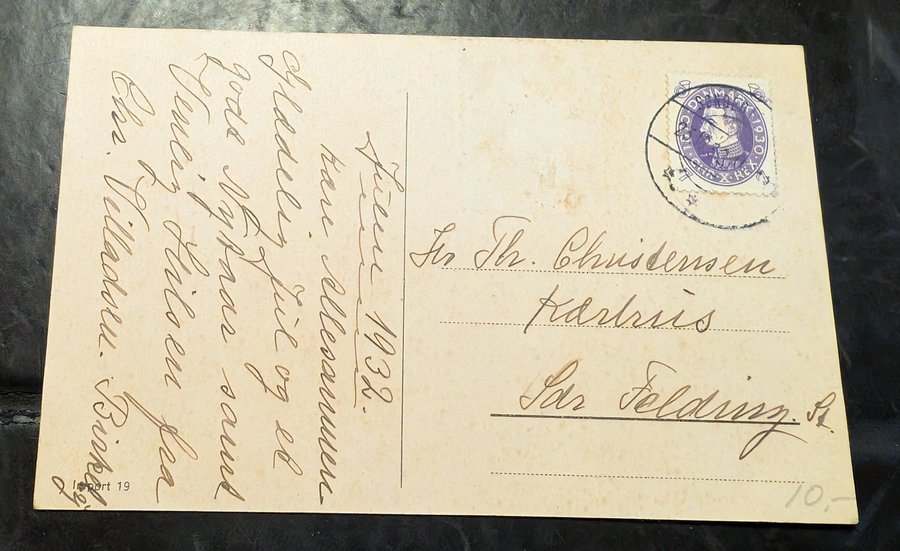 Julen 1932.
kære Allesammen
Glædelig Jul og et
godt Nytaar samt
Venlig Hilsen fra
Chr. Villadsen. Birkebj
Hr Th. Christensen
Kærhus
Sdr Felding. St.
DANMARK · 1930
1870 · CHR · X · REX
Import 19
10.-